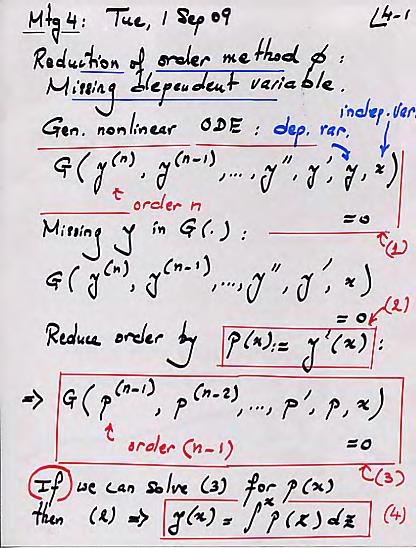 Mtg 4: Tue, 1 Sep 09 L4-1
Reduction of order method φ :
Missing dependent variable.
indep. var.
Gen. nonlinear ODE : dep. var.
G( y^(n), y^(n-1), ..., y'', y', y, x )
order n
= 0 (1)
Missing y in G(.) :
G( y^(n), y^(n-1), ..., y'', y', x )
= 0
(2)
Reduce order by p(x) := y'(x) :
⇒ G( p^(n-1), p^(n-2), ..., p', p, x )
order (n-1) = 0
(3)
If we can solve (3) for p(x)
then (2) ⇒ y(x) = ∫^x p(z) dz (4)